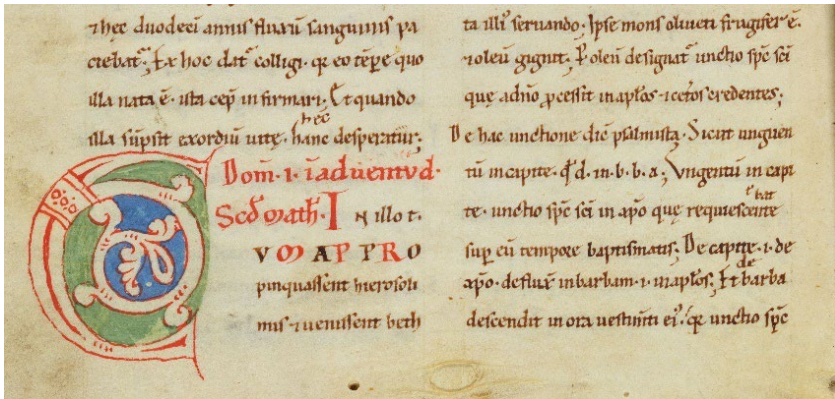 ⁊ hęc duodecī annis fluxū sanguinis pa
ciebat᷑; Ex hoc dat᷑ colligi · qr eo tēpr̄e quo
illa nata ē · ista cep̄ infirmari · Et quando
illa sūpsit exordiū uitę · hanc hęc desperatur;
Dom̄ · i · ī aduentū d ·
Scd̄ math · I N illo t ·
V M A P P R O
pinquassent hierosoli
mis · ⁊ uenissent beth
ta illi᷒ seruando; Ipse mons oliueti frugifer ē ·
⁊ oleū gignit; P̱ oleū designat᷑ unctio sp̄c sc̄i
quę a dn̄o p̱cessit in ap̄los · ⁊ cet̄os credentes;
De hac unctione dic̄ psalmista · Sicut unguen
tū in capite · q̄ d · in · b · b · a; Vngentū in capi
te · unctio sp̄c sc̄i in xp̄o quę requiescente
sup̱ eū tempore baptismatis; De capite · i · de
xp̄o · defluxit in barbam · i · in ap̄los; Et de barba
descendit in ora uestim̄ti ei᷒ · qr unctio sp̄c